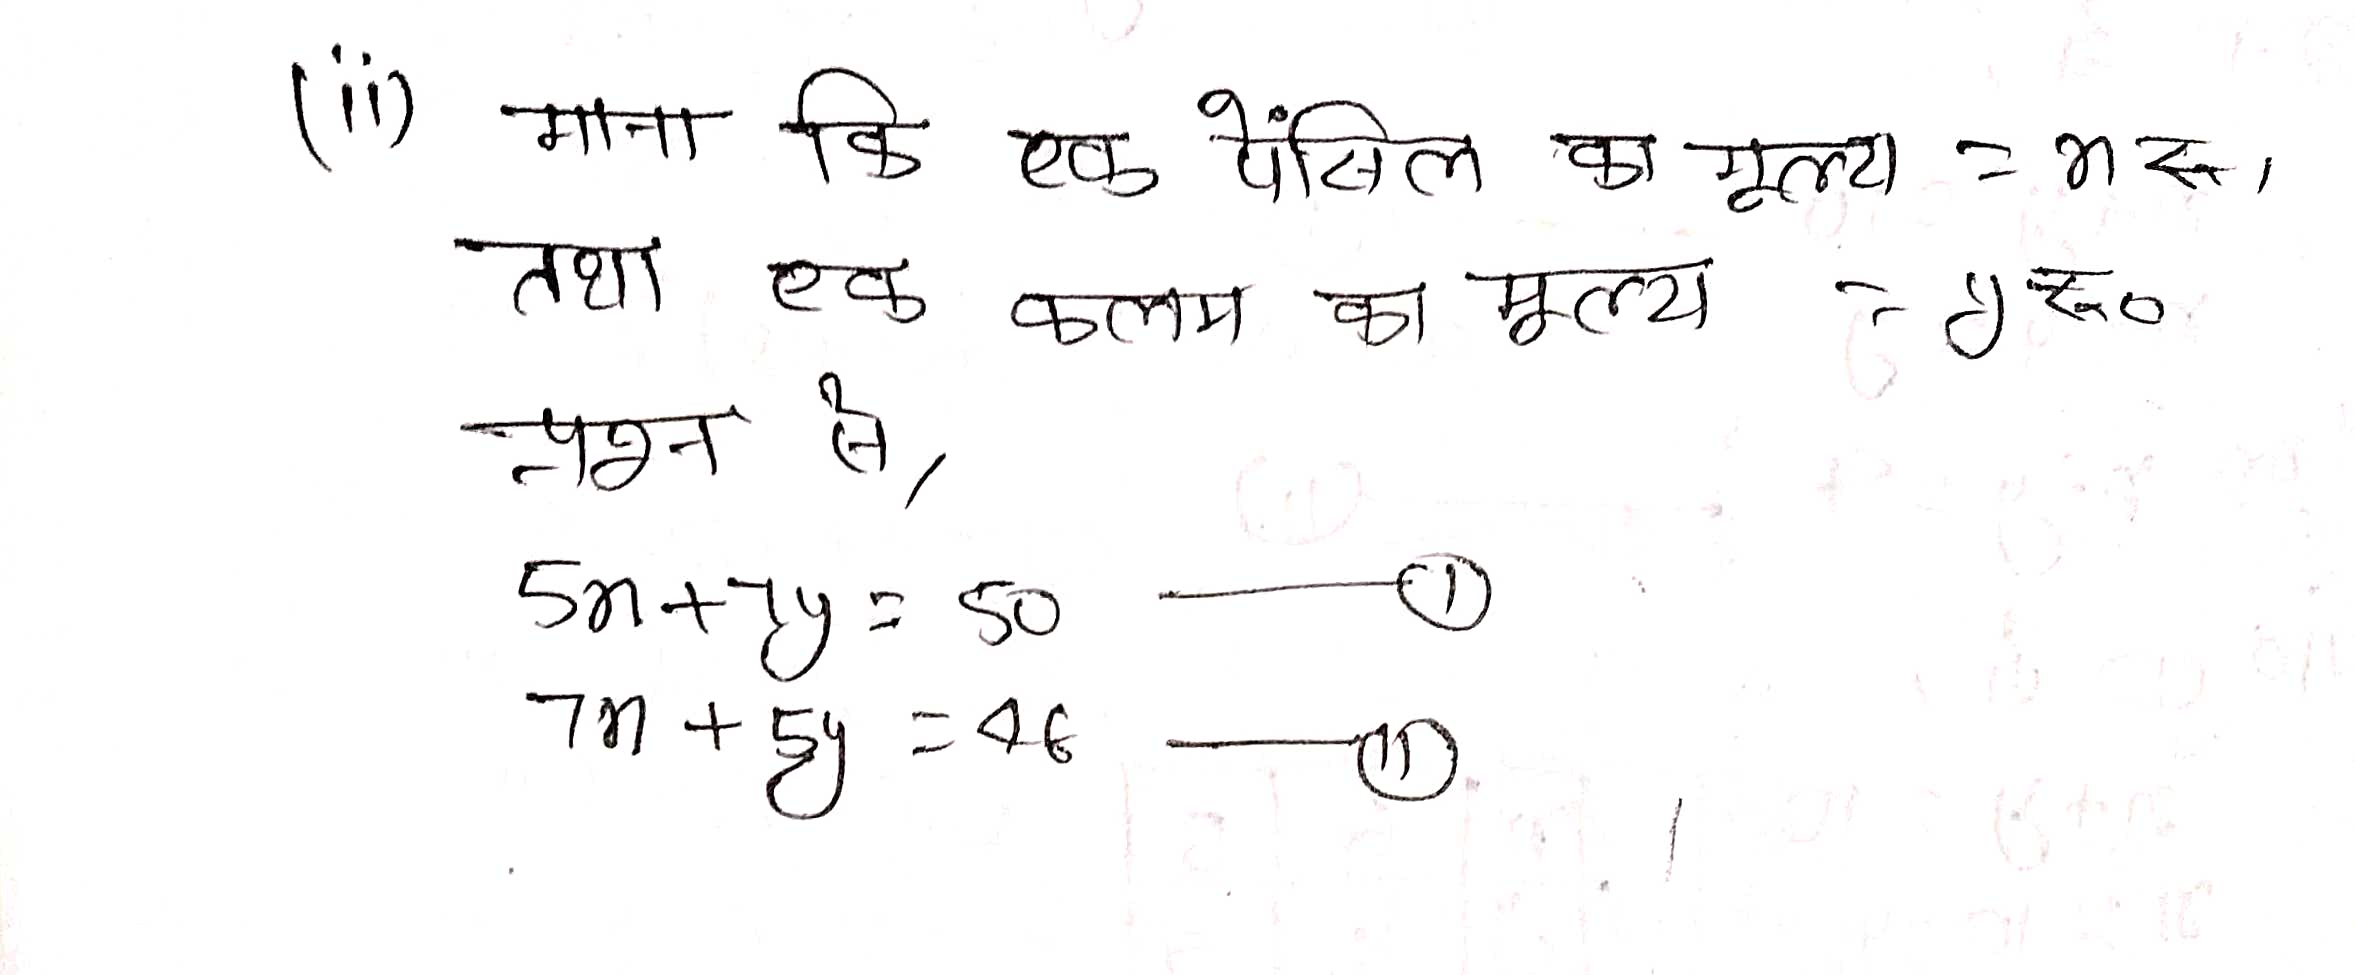 (ii) माना कि एक पेंसिल का मूल्य = x रु,
तथा एक कलम का मूल्य = y रु०
प्रश्न से,
5x + 7y = 50 — (I)
7x + 5y = 46 — (II)